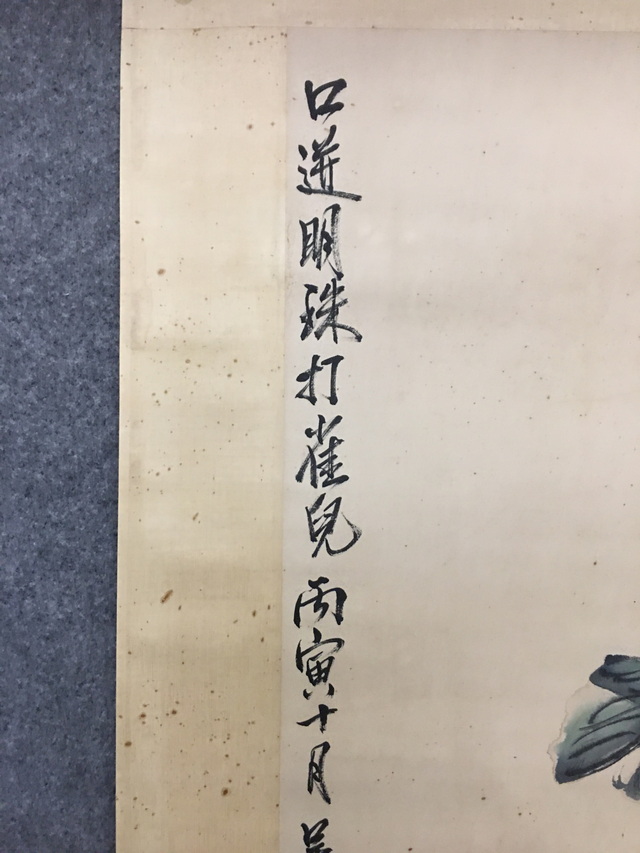 口迸明珠打雀兒丙寅十月